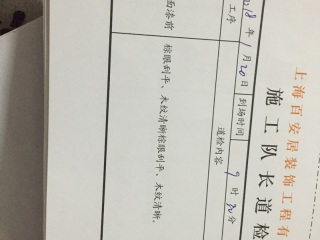 上海百安居装饰工程有
施工队长道检
2018年1月20日 到场时间 9时30分
工序 道检内容
面漆前 棕眼刮平、木纹清晰棕眼刮平、木纹清晰.